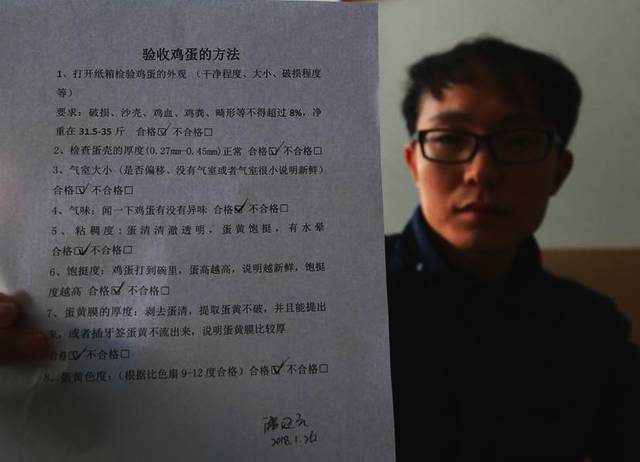 验收鸡蛋的方法
1、打开纸箱检验鸡蛋的外观 （干净程度、大小、破损程度
等）
要求：破损、沙壳、鸡血、鸡粪、畸形等不得超过 8%，净
重在 31.5-35 斤 合格☑不合格□
2、检查蛋壳的厚度(0.27mm-0.45mm)正常 合格☑不合格□
3、气室大小（是否偏移、没有气室或者气室很小说明新鲜）
合格☑不合格□
4、气味：闻一下鸡蛋有没有异味 合格☑不合格□
5、粘稠度：蛋清清澈透明，蛋黄饱挺，有水晕
合格☑不合格□
6、饱挺度：鸡蛋打到碗里，蛋高越高，说明越新鲜，饱挺
度越高 合格☑不合格□
7、蛋黄膜的厚度：剥去蛋清，提取蛋黄不破，并且能提出
来，或者插牙签蛋黄不流出来，说明蛋黄膜比较厚
合格☑不合格□
8、蛋黄色度：（根据比色扇 9-12 度合格）合格☑不合格□
2018.1.26